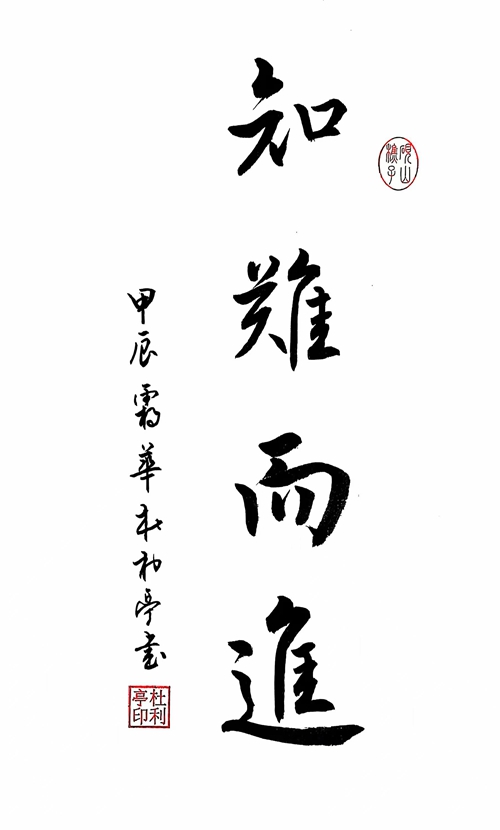 硯山樵子
知難而進
甲辰霜華杜利亭書
杜利亭印